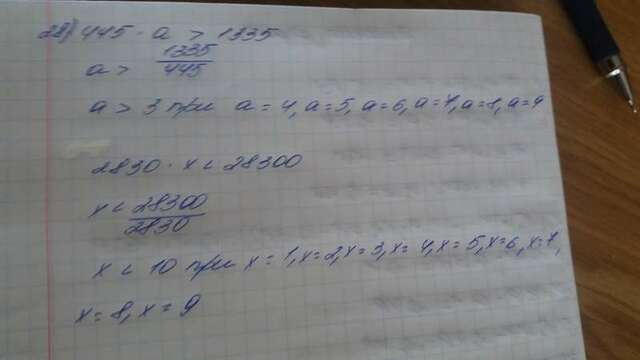 28) 445 · a > 1335
a > 1335/445
a > 3 при a = 4, a = 5, a = 6, a = 7, a = 8, a = 9
2830 · x < 28300
x < 28300/2830
x < 10 при x = 1, x = 2, x = 3, x = 4, x = 5, x = 6, x = 7,
x = 8, x = 9